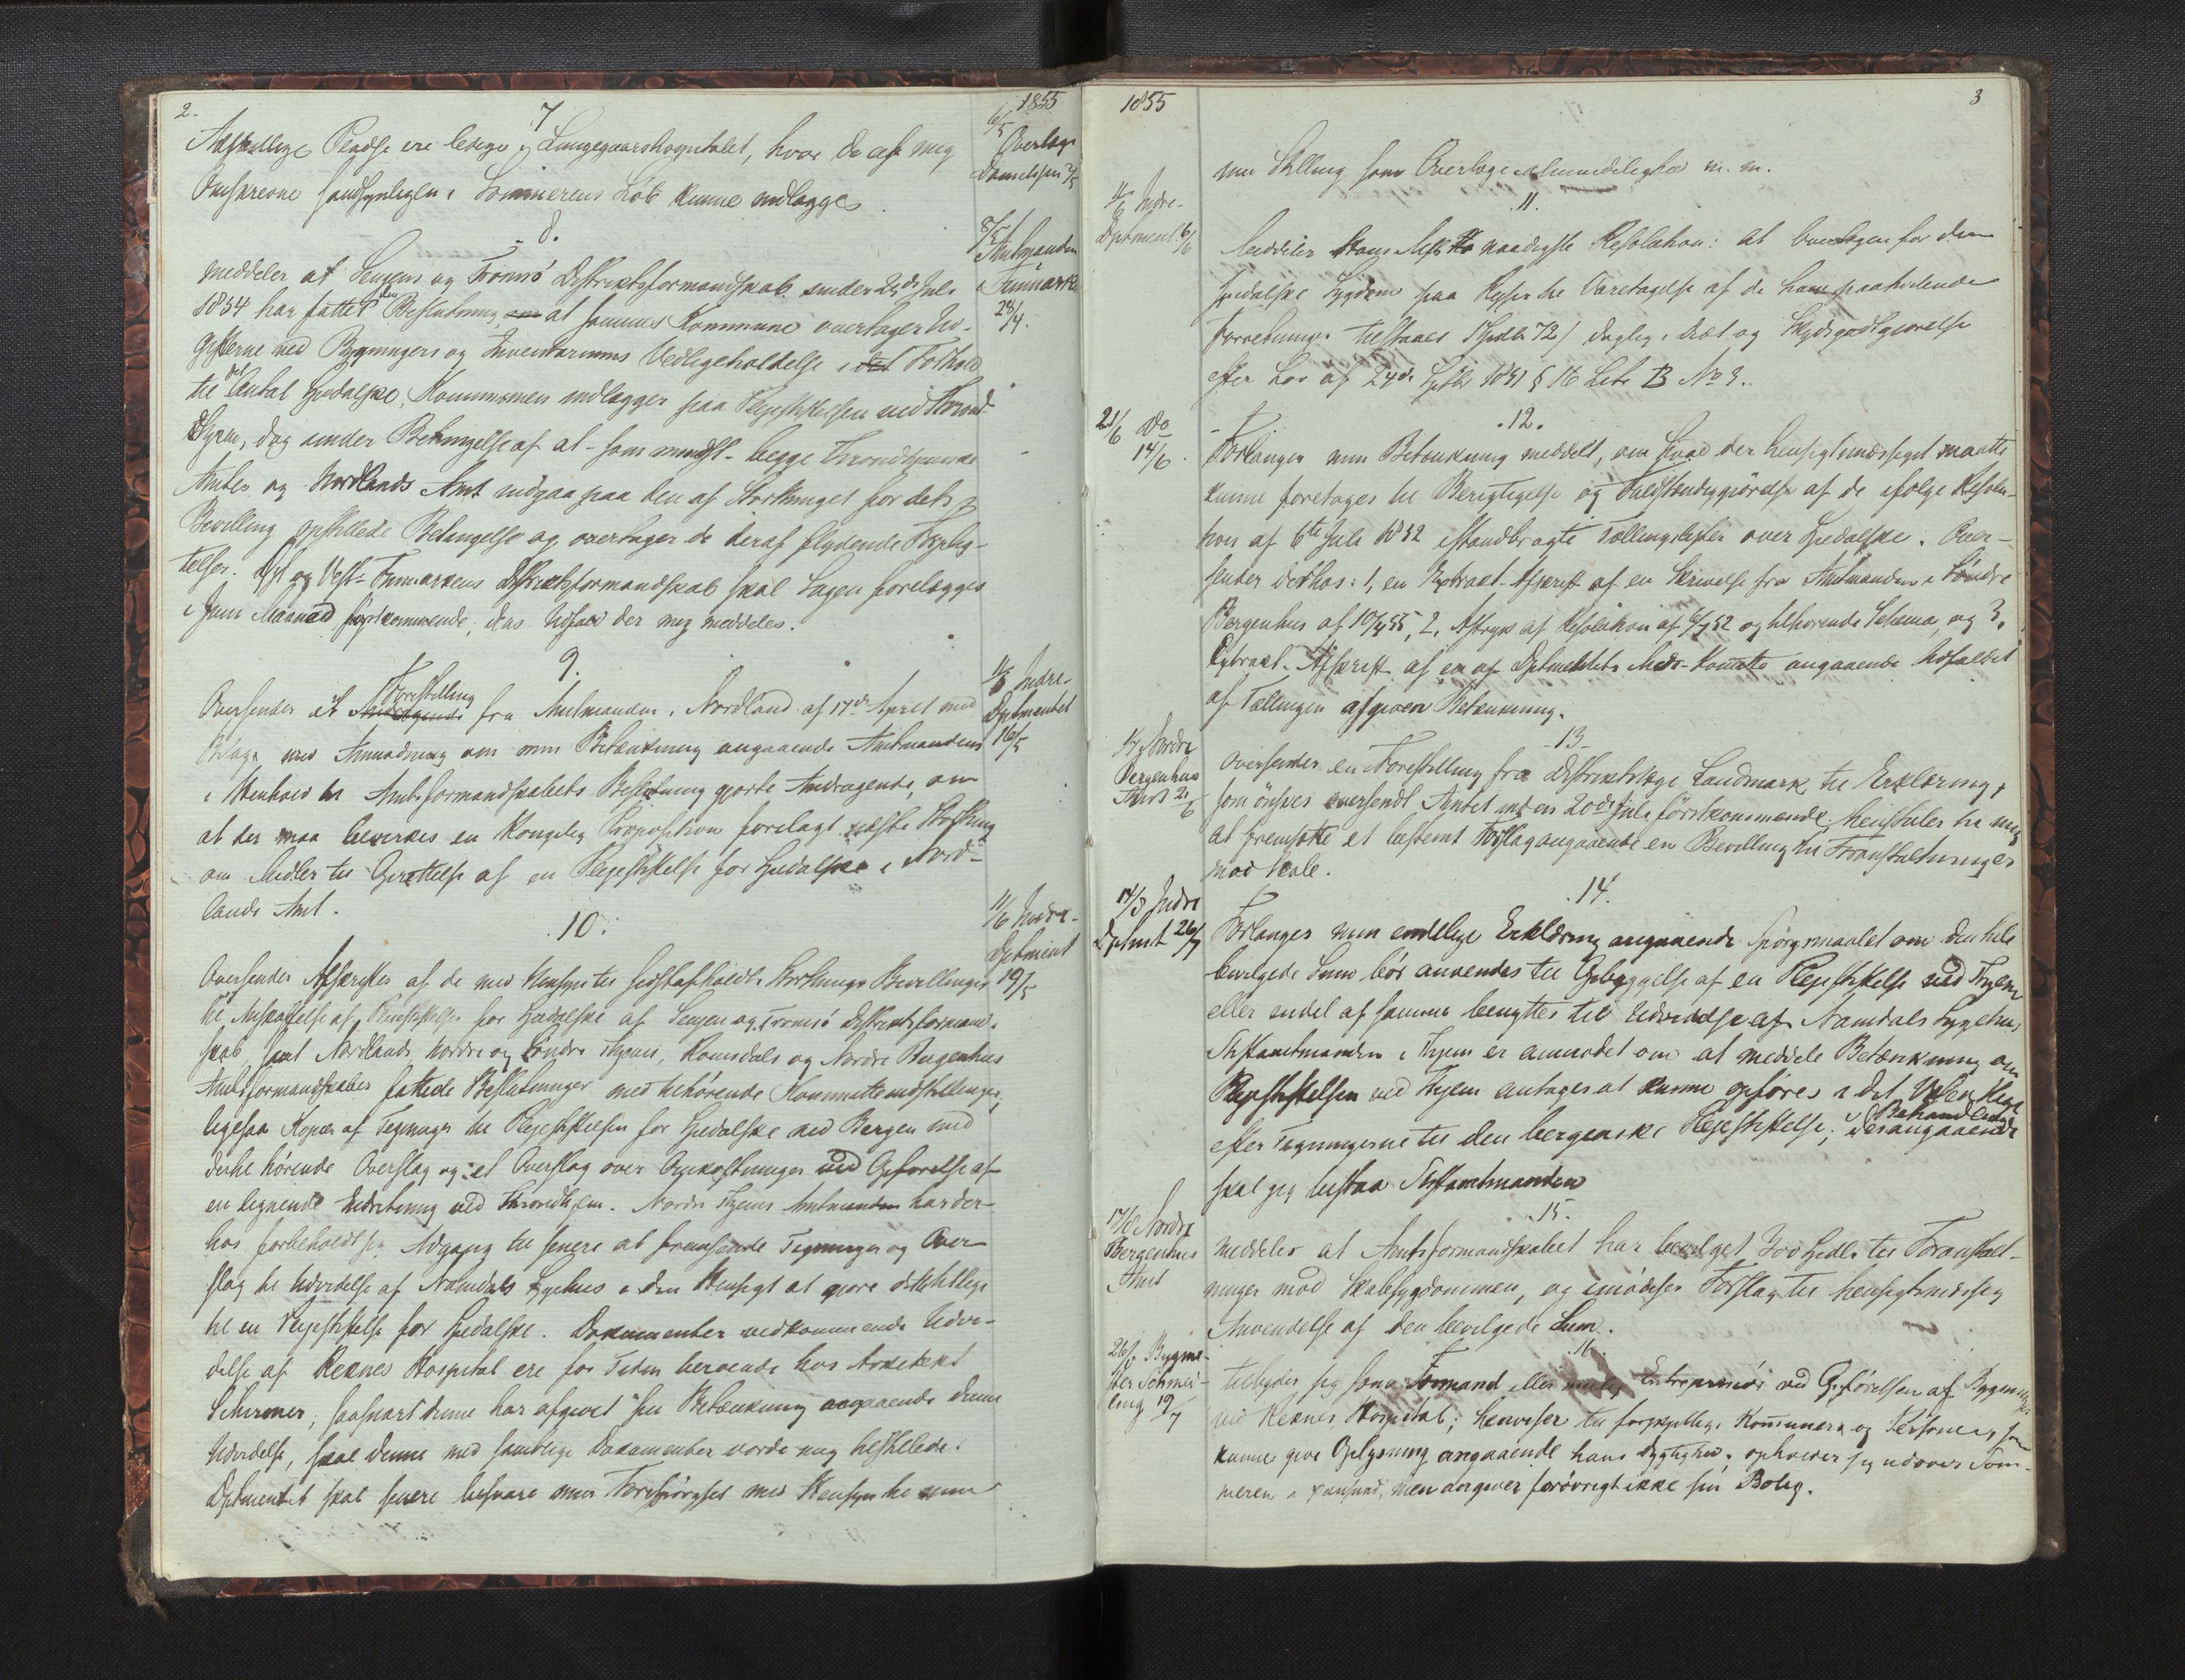 2.
1855
7
6/5 Overlæge
Danielssen 2/5
Adskillige Pladse ere ledige i Lungegaardshospitalet, hvor de af mig
Omskrevne sandsynligen i Sommerens Løb kunne indlægges.
8.
8/5 Amtmanden
i Finmarken
28/4.
meddeler at Senjens og Tromsø Distriktsformandskab under 2den Juli
1854 har fattet den Beslutning, om at sammes Kommune overtager Ud-
gifterne ved Bygningers og Inventariums Vedligeholdelse i det Forhold
til det Antal Spedalske, Kommunen indlægger paa Plejestiftelsen ved Thrond-
hjem, dog under Betingelse af at - som mindst - begge Throndhjemske
Amter og Nordlands Amt indgaa paa den af Storthinget for dets
Bevilling opstillede Betingelse og overtager de deraf flydende Forplig-
telser. Øst og Vest-Finmarkens Distriktsformandskab skal Sagen forelægges
i Juni Maaned førstkommende, dens Udfald der mig meddeles.
9.
1/6 Indre-
Dptmentet
16/5
Oversender et Andragende Forestilling fra Amtmanden i Nordland af 17de April med
Bilage, med Anmodning om min Betænkning angaaende Amtmandens
i Henhold til Amtsformandskabets Beslutning gjorte Andragende, om
at der maa bevirkes en Kongelig Proposition forelagt næste Storthing
om Midler til Oprettelse af en Plejestiftelse for Spedalske i Nord-
lands Amt.
10.
11/6 Indre-
Dptment
19/5
Oversender Afskrifter af de med Hensyn til sidstafholdte Storthings Bevillinger
til Anskaffelse af Plejestiftelser for Spedalske af Senjen og Tromsø Distriktsformand-
skab, samt Nordlands, Nordre og Søndre Thjems, Romsdals og Nordre Bergenhus
Amtsformandskaber fattede Beslutninger med tilhørende Kommitteindstillinger,
ligesaa Kopier af Tegninger til Plejestiftelsen for Spedalske ved Bergen med
dertil hørende Overslag og et Overslag over Omkostninger ved Opførelse af
en lignende Indretning ved Throndhjem. Nordre Thjems Amtmanden har der-
hos forbeholdt sig Adgang til senere at fremsende Tegninger og Over-
slag til Udvidelse af Namdals Sygehus i den Hensigt at gjøre det tillige
til en Plejestiftelse for Spedalske. Dokumenter vedkommende Udvi-
delse af Reknes Hospital ere for Tiden beroende hos Arkitekt
Schirmer; saasnart denne har afgivet sin Betænkning angaaende denne
Udvidelse, skal denne med samtlige Dokumenter vorde mig tilstillede.
Dptmentet skal senere besvare min Forespørgsel med Hensyn til min
1855
3
min Stilling som Overlæge i Almindelighed m. m.
11.
11/6 Indre-
Dptment 6/6
Meddeler Hans Majts naadigste Resolution: at Overlægen for den
spedalske Sygdom paa Rejser til Varetagelse af de ham paahvilende
Forretninger tilstaaes 1 Spdlr 72 / daglig i Diæt og Skydsgodtgjørelse
efter Lov af 24de Septbr 1851 § 16 Litr. B No 3.
12.
21/6 Do
14/6.
Forlanger min Betænkning meddelt, om hvad der hensigtsmæssigst maatte
kunne foretages til Berigtigelse og Fuldstændiggjørelse af de ifølge Resolu-
tion af 6te Juli 1852 istandbragte Tællingslister over Spedalske. Over-
sender derhos: 1, en Extrakt-Afskrift af en Skrivelse fra Amtmanden i Søndre
Bergenhus af 10/4 55, 2, Aftryk af Resolution af 6/7 52 og tilhørende Schema, og 3,
Extrakt-Afskrift af en af Dptmentets Medic-Komite angaaende Udfaldet
af Tællingen afgiven Betænkning.
13
1/7 Nordre
Bergenhus
Amt 21/6
Oversender en Forestilling fra Distriktslæge Landmark til Erklæring,
som ønskes oversendt Amtet inden 20de Juli førstkommende; henstiller til mig
at fremsætte et bestemt Forslag angaaende en Bevilling til Foranstaltninger
mod Skab.
14.
14/8 Indre
Dptmt 26/7
Forlanger min endelige Erklæring angaaende Spørgsmaalet om den hele
bevilgede Sum bør anvendes til Opbyggelse af en Plejestiftelse ved Thjem
eller endel af samme benyttes til Udvidelse af Namdals Sygehus,
Stiftamtmanden i Thjem er anmodet om at meddele Betænkning om
Plejestiftelsen ved Thjem antages at kunne opføres i det Væsentlige
efter Tegningerne til den bergenske Plejestiftelse; i Behandlingen desangaaende
skal jeg bistaa Stiftamtmanden
15.
17/8 Nordre
Bergenhus
Amt
meddeler at Amtsformandskabet har bevilget 300 Spdlr til Foranstalt-
ninger mod Skabsygdommen, og imødeser Forslag til hensigtsmæssig
Anvendelse af den bevilgede Sum.
16.
26/8 Bygme-
ster Schmei-
ling 19/7
tilbyder sig som Formand eller mulig Entreprenør ved Opførelsen af Bygninger
ved Reknes Hospital; henviser til forskjellige Kommuner og Personer, som
kunne give Oplysning angaaende hans Dygtighed; opholder sig udover Som-
meren i men angiver forøvrigt ikke sin Bolig.